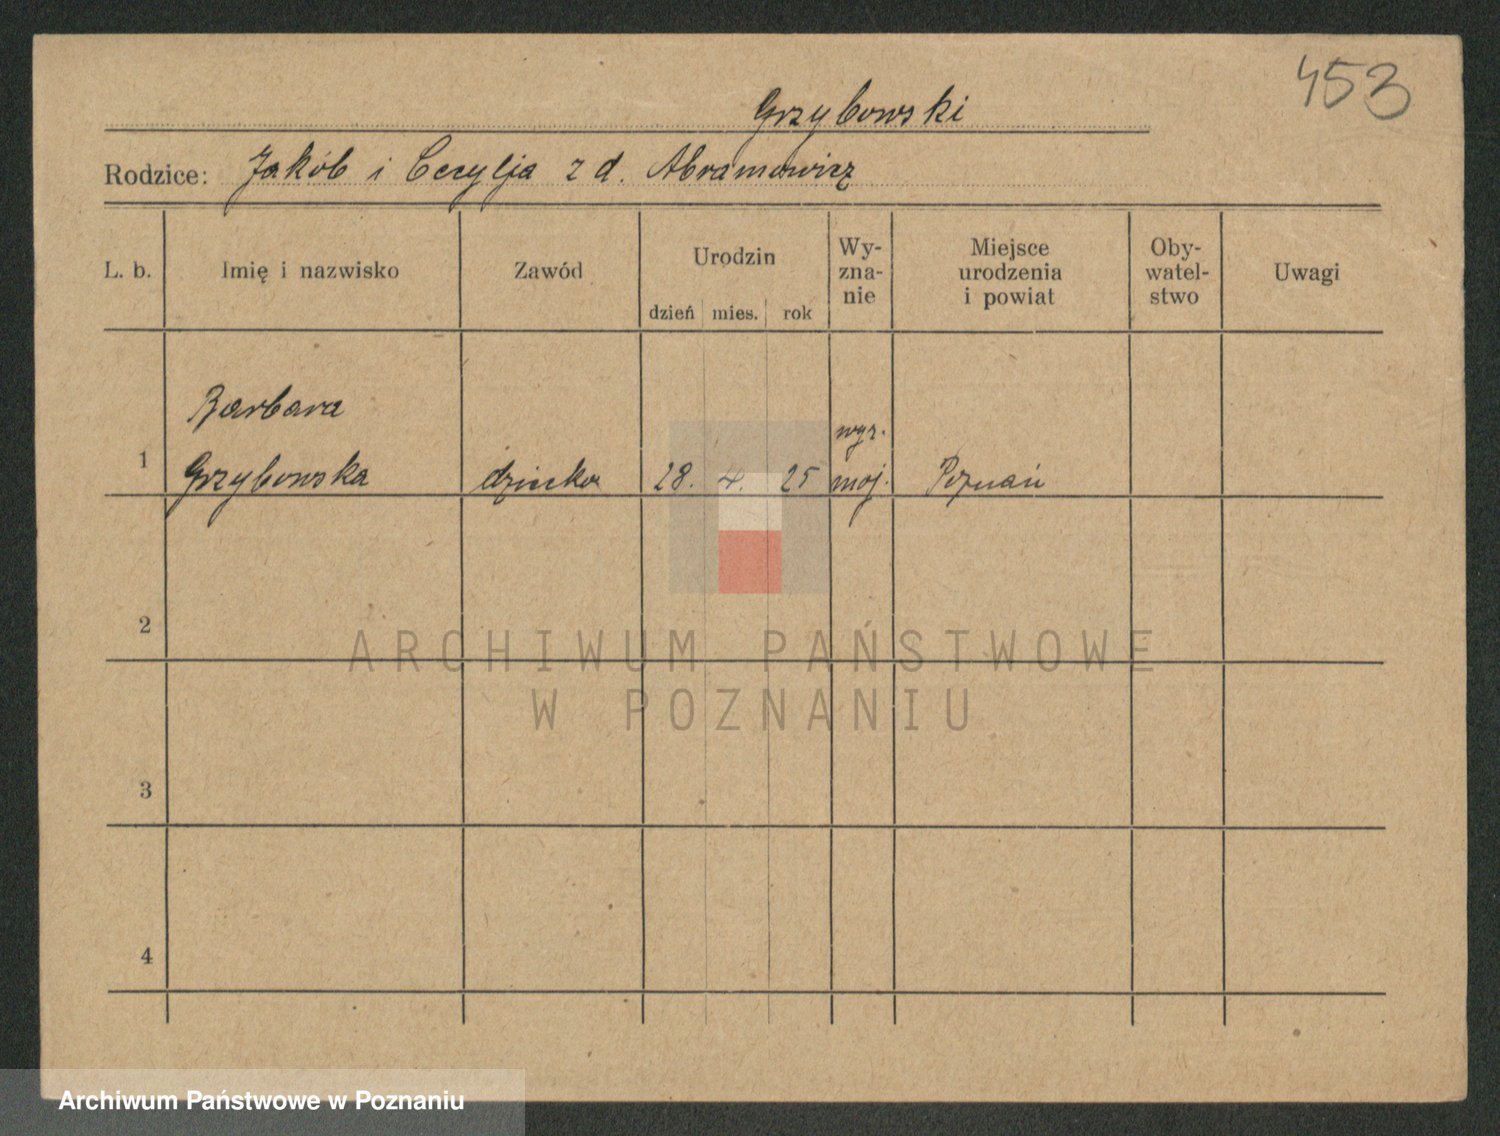 453
Grzybowski
Rodzice: Jakób i Cecylja z d. Abramowicz
L. b. Imię i nazwisko Zawód Urodzin dzień mies. rok Wy-zna-nie Miejsce urodzenia i powiat Oby-watel-stwo Uwagi
Barbara
1 Grzybowska dziecko 28. 4. 25 wyz. moj. Poznań
2
ARCHIWUM PAŃSTWOWE
W POZNANIU
3
4
Archiwum Państwowe w Poznaniu